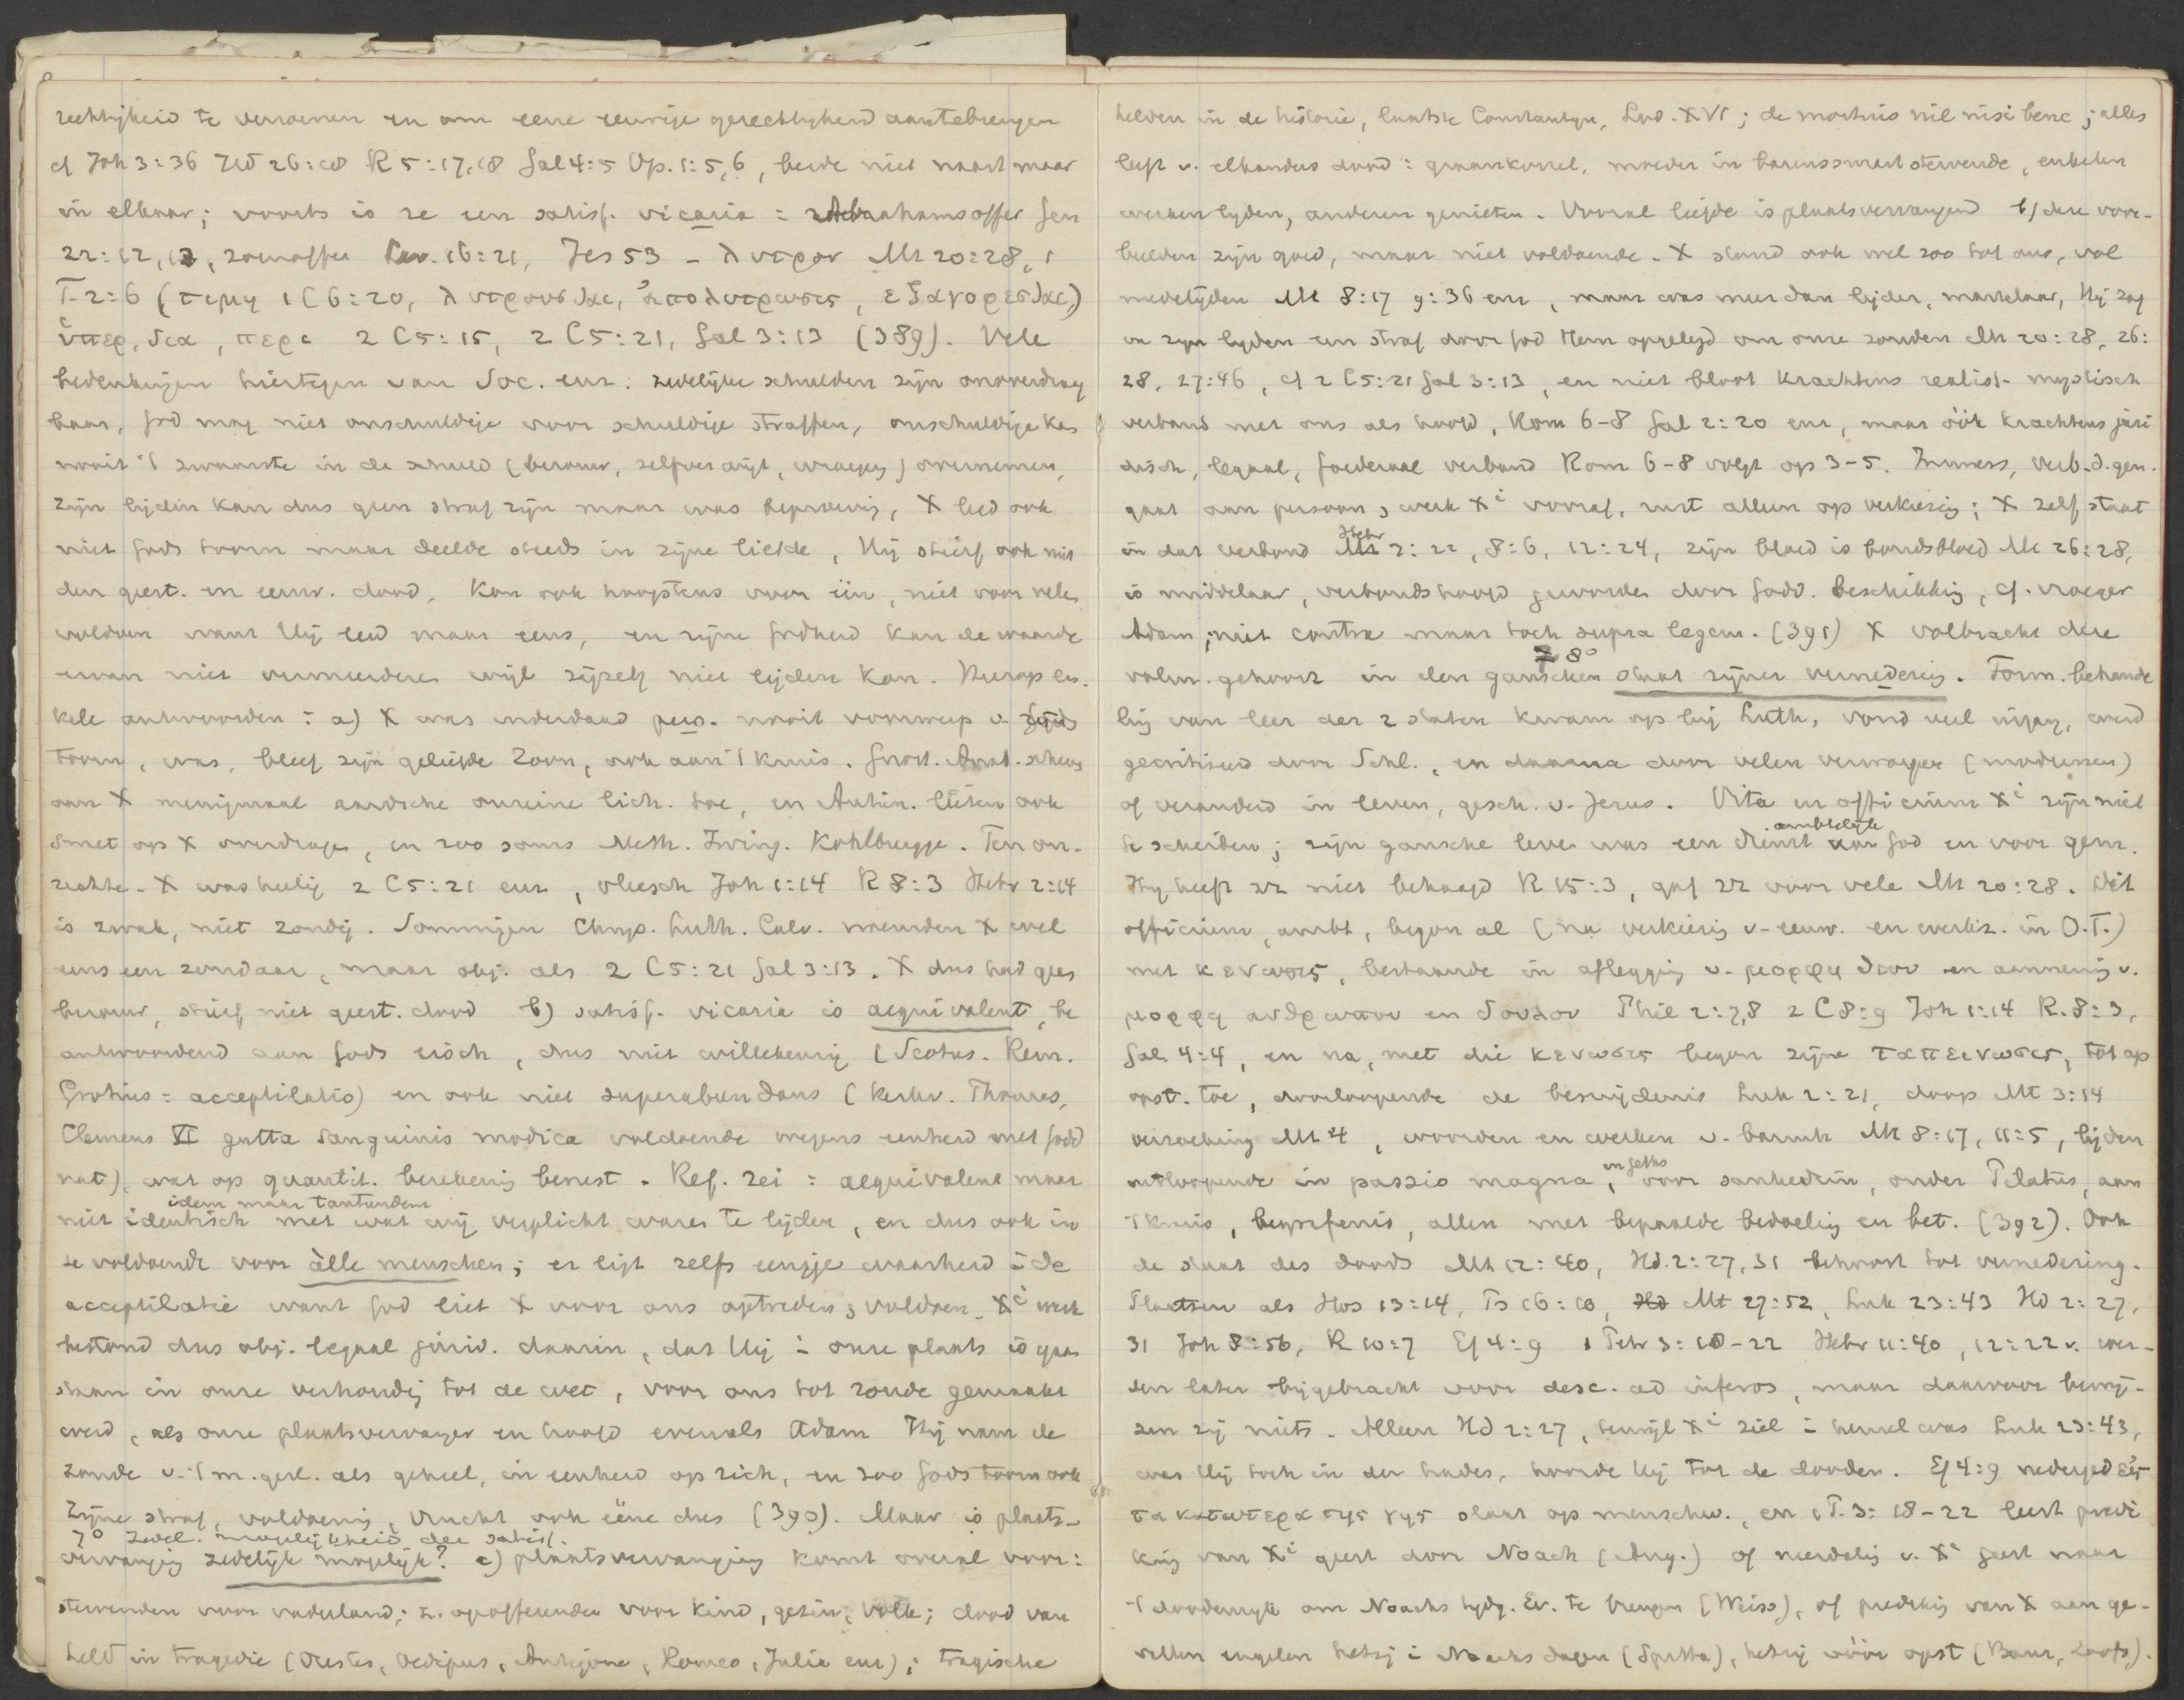 rechtigheid te verwerven en om eene eeuwige gerechtigheid aantebrengen
cf Joh 3:36 Hd 26:18 R 5:17,18 Gal 4:5 Op. 1:5,6, beide niet naast maar
in elkaar; voorts is ze een satisf. vicaria: Abrahams offer Gen
22:12, 13, zoenoffer Lev. 16:21, Jes 53 - λυτρον Mt 20:28, 1
T. 2:6 (τιμη 1 C 6:20, λυτρουσθαι, ἀπολυτρωσις, ἐξαγορεσθαι)
ὑπερ, δια, περι 2 C 5:15, 2 C 5:21, Gal 3:13 (389). Vele
bedenkingen hiertegen van Soc. enz: zedelijke schulden zijn onoverdraag
baar, God mag niet onschuldige voor schuldige straffen, onschuldige kan
nooit 't zwaarste in de schuld (berouw, zelfverwijt, wroeging) overnemen,
zijn lijden kan dus geen straf zijn maar was beproeving, X leed ook
niet Gods toorn maar deelde steeds in zijne liefde, Hij stierf ook niet
den geest. en eeuw. dood. Kon ook hoogstens voor één, niet voor velen
voldoen want Hij leed maar eens, en zijne Godheid kan de waarde
ervan niet vermeerderen wijl zijzelf niet lijden kan. Hierop en-
kele antwoorden: a) X was inderdaad pers. nooit voorwerp v. Gods
toorn, was, bleef zijn geliefde Zoon, ook aan 't kruis. Gnost. Anab. schreven
aan X menigmaal aardsche onreine lich. toe, en Antin. lieten ook
smet op X overdragen, en zoo soms Meth. Irving. Kohlbrugge. Ten on-
rechte. X was heilig 2 C 5:21 enz, vleesch Joh 1:14 R 8:3 Hebr 2:14
is zwak, niet zondig. Sommigen Chrys. Luth. Calv. noemden X wel
eens een zondaar, maar obj. als 2 C 5:21 Gal 3:13. X dus had geen
berouw, stierf niet geest. dood b) satisf. vicaria is aequivalent, be
antwoordend aan Gods eisch, dus niet willekeurig (Scotus. Rem.
Grotius: acceptilatio) en ook niet superabundans (kerkv. Thomas,
Clemens VI gutta sanguinis modica voldoende wegens eenheid met godd
nat), wat op quantit. berekening berust. Ref. zei: aequivalent maar
idem maar tantundem
niet identisch met wat wij verplicht waren te lijden, en dus ook in
se voldoende voor àlle menschen; er ligt zelfs eenige waarheid i de
acceptilatie want God liet X voor ons optreden, voldoen. Xi werk
bestond dus obj. legaal jurid. daarin, dat Hij i onze plaats is gaan
staan in onze verhouding tot de wet, voor ons tot zonde gemaakt
werd, als onze plaatsvervanger en hoofd evenals Adam Hij nam de
zonde v. 't m. gesl. als geheel, in eenheid op zich, en zoo Gods toorn ook
Zijne straf, voldoening, vrucht ook ééne dus (390). Maar is plaats-
7° Zedel. mogelijkheid der satisf.
vervanging zedelijk mogelijk? a) plaatsvervanging komt overal voor:
stervenden voor vaderland; z. opofferenden voor kind, gezin, volk; dood van
held in tragedie (Orestes, Oedipus, Antigone, Romeo, Julia enz); tragische
helden in de historie, laatste Constantijn, Lod. XVI; de mortuis nil nisi bene; alles
leeft v. elkanders dood: graankorrel, moeder in barenssmart stervende, enkelen
werken lyden, anderen genieten. Vooral liefde is plaatsvervangend b) deze voor-
beelden zijn goed, maar niet voldoende. X stond ook wel zoo tot ons, vol
medelijden Mt 8:17 9:36 enz, maar was meer dan lijder, martelaar, Hij zag
in zijn lyden een straf door God Hem opgelegd om onze zonden Mt 20:28, 26:
28, 27:46, cf 2 C 5:21 Gal 3:13, en niet bloot krachtens realist. mystisch
verband met ons als hoofd, Rom 6-8 Gal 2:20 enz, maar óók krachtens juri
disch, legaal, foederaal verband Rom 6-8 volgt op 3-5. Immers, verb. d. gen.
gaat aan persoon, werk Xi vooraf, rust alleen op verkiezing; X zelf staat
Hebr
in dat verband 7:22, 8:6, 12:24, zijn bloed is bondsbloed Mt 26:28,
is middelaar, verbondshoofd geworden door Godd. beschikking, cf. vroeger
Adam; niet contra maar toch supra legem. (391) X volbracht deze
8°
volm. gehoorz in den ganschen staat zijner vernedering. Form. behande
ling van leer der 2 staten kwam op bij Luth, vond veel ingang, werd
gecritiseerd door Schl., en daarna door velen verworpen (modernen)
of veranderd in leven, gesch. v. Jezus. Vita en officium Xi zijn niet
ambtelijk
te scheiden; zijn gansche leven was een dienst van God en voor gem.
Hij heeft zz niet behaagd R 15:3, gaf zz voor vele Mt 20:28. Dit
officium, ambt, begon al (na verkiezing v. eeuw. en werkz. in O.T.)
met κενωσις, bestaande in aflegging v. μορφη θεου en aanneming v.
μορφη ανθρωπου en δουλου Phil 2:7,8 2 C 8:9 Joh 1:14 R. 8:3,
Gal. 4:4, en na, met die κενωσις begon zijne ταπεινωσις, tot op
opst. toe, doorloopende de besnijdenis Luk 2:21, doop Mt 3:14
verzoeking Mt 4, woorden en werken v. barmh Mt 8:17, 11:5, lijden
in Geths
uitloopende in passio magna, voor sanhedrin, onder Pilatus, aan
't kruis, begrafenis, allen met bepaalde bedoeling en bet. (392). Ook
de staat des doods Mt 12:40, Hd. 2:27,31 behoort tot vernedering.
Plaatsen als Hos 13:14, Ps 16:10, Mt 27:52, Luk 23:43 Hd 2:27,
31 Joh 8:56, R 10:7 Ef 4:9 1 Petr 3:18-22 Hebr 11:40, 12:22 v. wer-
den later bijgebracht voor desc. ad inferos, maar daarvoor bewij-
zen zij niets. Alleen Hd 2:27, terwijl Xi ziel i hemel was Luk 23:43,
was Hij toch in den hades, hoorde Hij tot de dooden. Ef 4:9 nederged εἰς
τα κατωτερα της γης slaat op menschw., en 1 P. 3:18-22 leert predi
king van Xi geest door Noach (Aug.) of nederdaling v. Xi geest naar
't doodenrijk om Noachs tydg. Ev. te brengen (Weiss), of prediking van X aan ge-
vallen engelen hetzij i Noachs dagen (Spitta), hetzij vóór opst (Baur, Loofs).